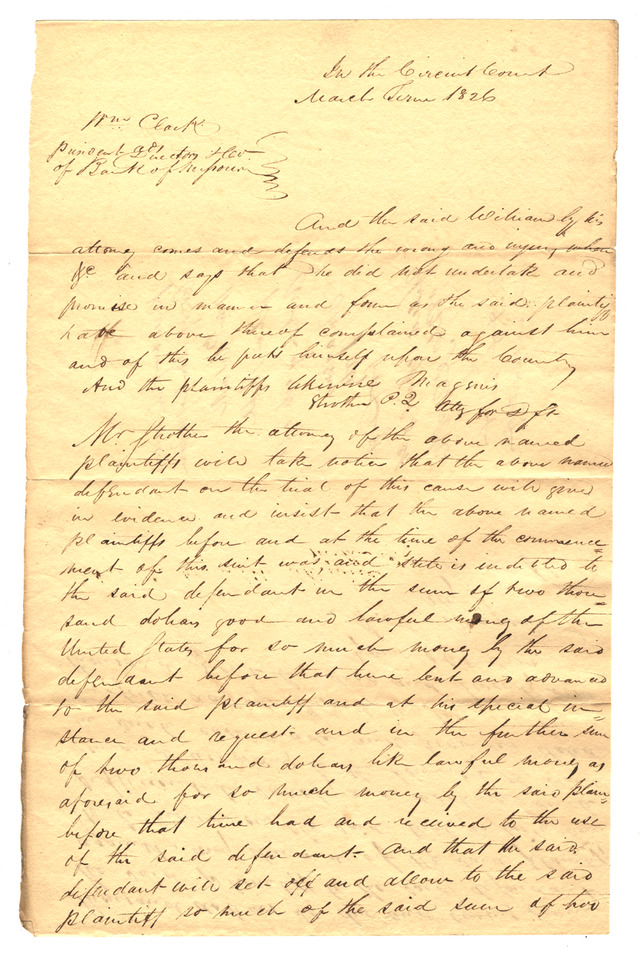 In the Circuit Court
March Term 1826
Wm Clark
President Directors & Co.
of Bank of Missouri
And the said William by his
attorney comes and defends the wrong and injury when
&c and says that he did not undertake and
promise in manner and form as the said plaintiffs
have above thereof complained against him
and of this he puts himself upon the Country
And the plaintiffs likewise Magenis
Strother P.Q. Atty for Dft
Mr Strother the attorney of the above named
plaintiffs will take notice that the above named
defendant on the trial of this cause will give
in evidence and insist that the above named
plaintiffs before and at the time of the commence=
ment of this suit was and still is indebted to
the said defendant in the sum of two thou=
sand dollars good and lawful money of the
United States for so much money by the said
defendant before that time lent and advanced
to the said plaintiff and at his special in=
stance and request and in the further sum
of two thousand dollars like lawful money as
aforesaid for so much money by the said plain=
before that time had and received to the use
of the said defendant. And that the said
defendant will set off and allow to the said
plaintiff so much of the said sum of two